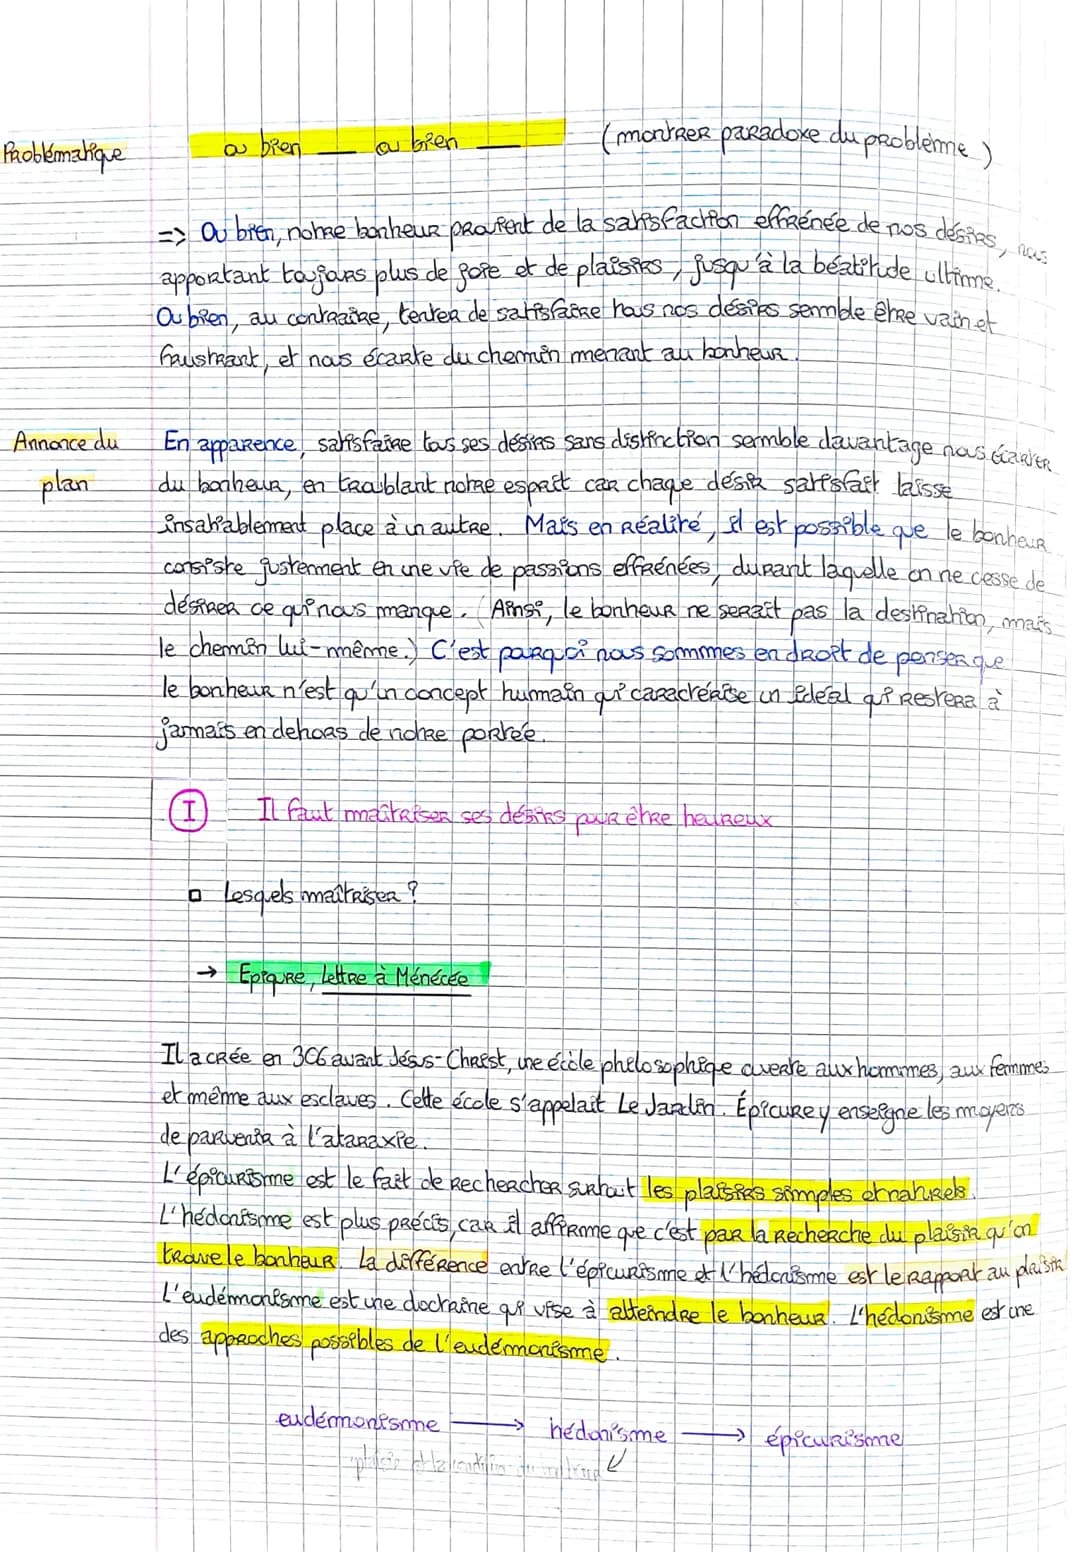 Problématique ou bien __ ou bien __ (montrer paradoxe du problème)
=> Ou bien, notre bonheur provient de la satisfaction effrénée de nos désirs, nous
apportant toujours plus de joie et de plaisirs, jusqu'à la béatitude ultime.
Ou bien, au contraire, tenter de satisfaire tous nos désirs semble être vain et
frustrant, et nous écarte du chemin menant au bonheur.
Annonce du En apparence, satisfaire tous ses désirs sans distinction semble davantage nous écarter
plan du bonheur, en troublant notre esprit car chaque désir satisfait laisse
insatiablement place à un autre. Mais en réalité, il est possible que le bonheur
consiste justement en une vie de passions effrénées, durant laquelle on ne cesse de
désirer ce qui nous manque. (Ainsi, le bonheur ne serait pas la destination, mais
le chemin lui-même.) C'est pourquoi nous sommes en droit de penser que
le bonheur n'est qu'un concept humain qui caractérise un idéal qui restera à
jamais en dehors de notre portée.
I Il faut maîtriser ses désirs pour être heureux
□ Lesquels maîtriser ?
→ Epicure, Lettre à Ménécée
Il a crée en 306 avant Jésus-Christ, une école philosophique ouverte aux hommes, aux femmes
et même aux esclaves. Cette école s'appelait Le Jardin. Épicure y enseigne les moyens
de parvenir à l'ataraxie.
L'épicurisme est le fait de rechercher surtout les plaisirs simples et naturels.
L'hédonisme est plus précis, car il affirme que c'est par la recherche du plaisir qu'on
trouve le bonheur. La différence entre l'épicurisme et l'hédonisme est le rapport au plaisir
L'eudémonisme est une doctrine qui vise à atteindre le bonheur. L'hédonisme est une
des approches possibles de l'eudémonisme.
eudémonisme → hédonisme → épicurisme
plaisir est la condition du